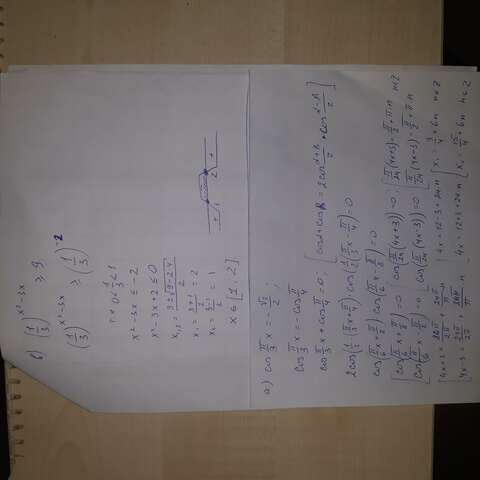 б) (1/3)^(x²-3x) ≥ 9
(1/3)^(x²-3x) ≥ (1/3)^(-2)
т.к 0<1/3<1
x²-3x ≤ -2
x²-3x+2 ≤ 0
x₁,₂ = (3±√(9-2·4))/2
x₁ = (3+1)/2 = 2
x₂ = (3-1)/2 = 1
+ 1 - 2 +
x ∈ [1; 2]
а) cos π/3 x = -√2/2;
cos π/3 x = -cos π/4
cos π/3 x + cos π/4 = 0; [cosα+cosβ = 2cos (α+β)/2 · cos (α-β)/2]
2cos(1/2(π/3 x+π/4))·cos(1/2(π/3 x-π/4))=0
cos(π/6 x+π/8)·cos(π/6 x-π/8)=0
[cos(π/6 x+π/8)=0 ; [cos(π/24(4x+3))=0 ; [π/24(4x+3)=π/2+πn n∈Z
[cos(π/6 x-π/8)=0 ; [cos(π/24(4x-3))=0 ; [π/24(4x-3)=π/2+πn
4x = 12-3+24n [x₁ = 9/4+6n n∈Z
4x = 12+3+24n [x₂ = 15/4+6n n∈Z